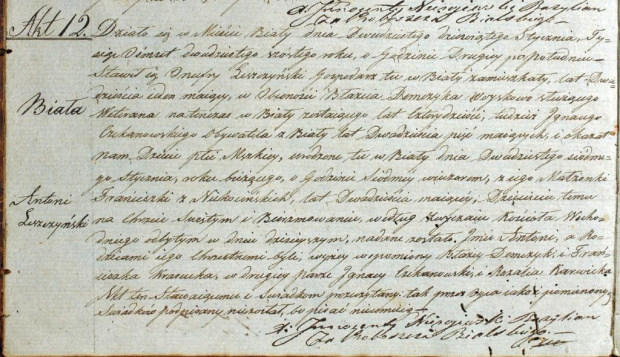 X. Innocenty Bazylian
Za Proboszcza Bialskiego
Akt 12.
Biała
Antoni
Leszczyński
Działo się w Mieście Biały dnia Dwudziestego dziewiątego Stycznia, Ty-
siąc Ośmset dwudziestego szóstego roku, o Godzinie Drugiey po południu
Stawił się Onufry Leszczyński Gospodarz tu w Biały zamieszkały, lat Dwa-
dzieścia ieden maiący, w Obecności Błażeia Demczyka woyskowo służącego
Weterana natenczas w Biały zostaiącego lat czterdzieści, tudzież Ignacego
Czekanowskiego obywatela z Biały lat Dwadzieścia pięć maiących, i okazał
nam Dziecie płci Męzkiey, urodzone tu w Biały dnia Dwudziestego siódme-
go Stycznia, roku bieżącego, o Godzinie Siódmey wieczorem, z iego Małżonki
Franciszki z lat Dwadzieścia maiącey, Dziecięciu temu
na Chrzcie Swiętym i Bierzmowaniu, według zwyczaiu Kościoła Wscho-
dniego odbytym w dniu dzisieyszym, nadane zostało Imie Antoni, a Ro-
dzicami iego Chrzestnemi byli, wyżey wspomniony Błażey Demczyk, i Fran-
ciszka w drugiey parze Ignacy Czekanowski, i Rozalia
Akt ten Stawaiącemu i Swiadkom przeczytany tak przez Oyca iako i pomienionych
Swiadków podpisany niezostał, bo pisać nieumieią
X. Innocenty Bazylian
Za Proboszcza Bialskiego